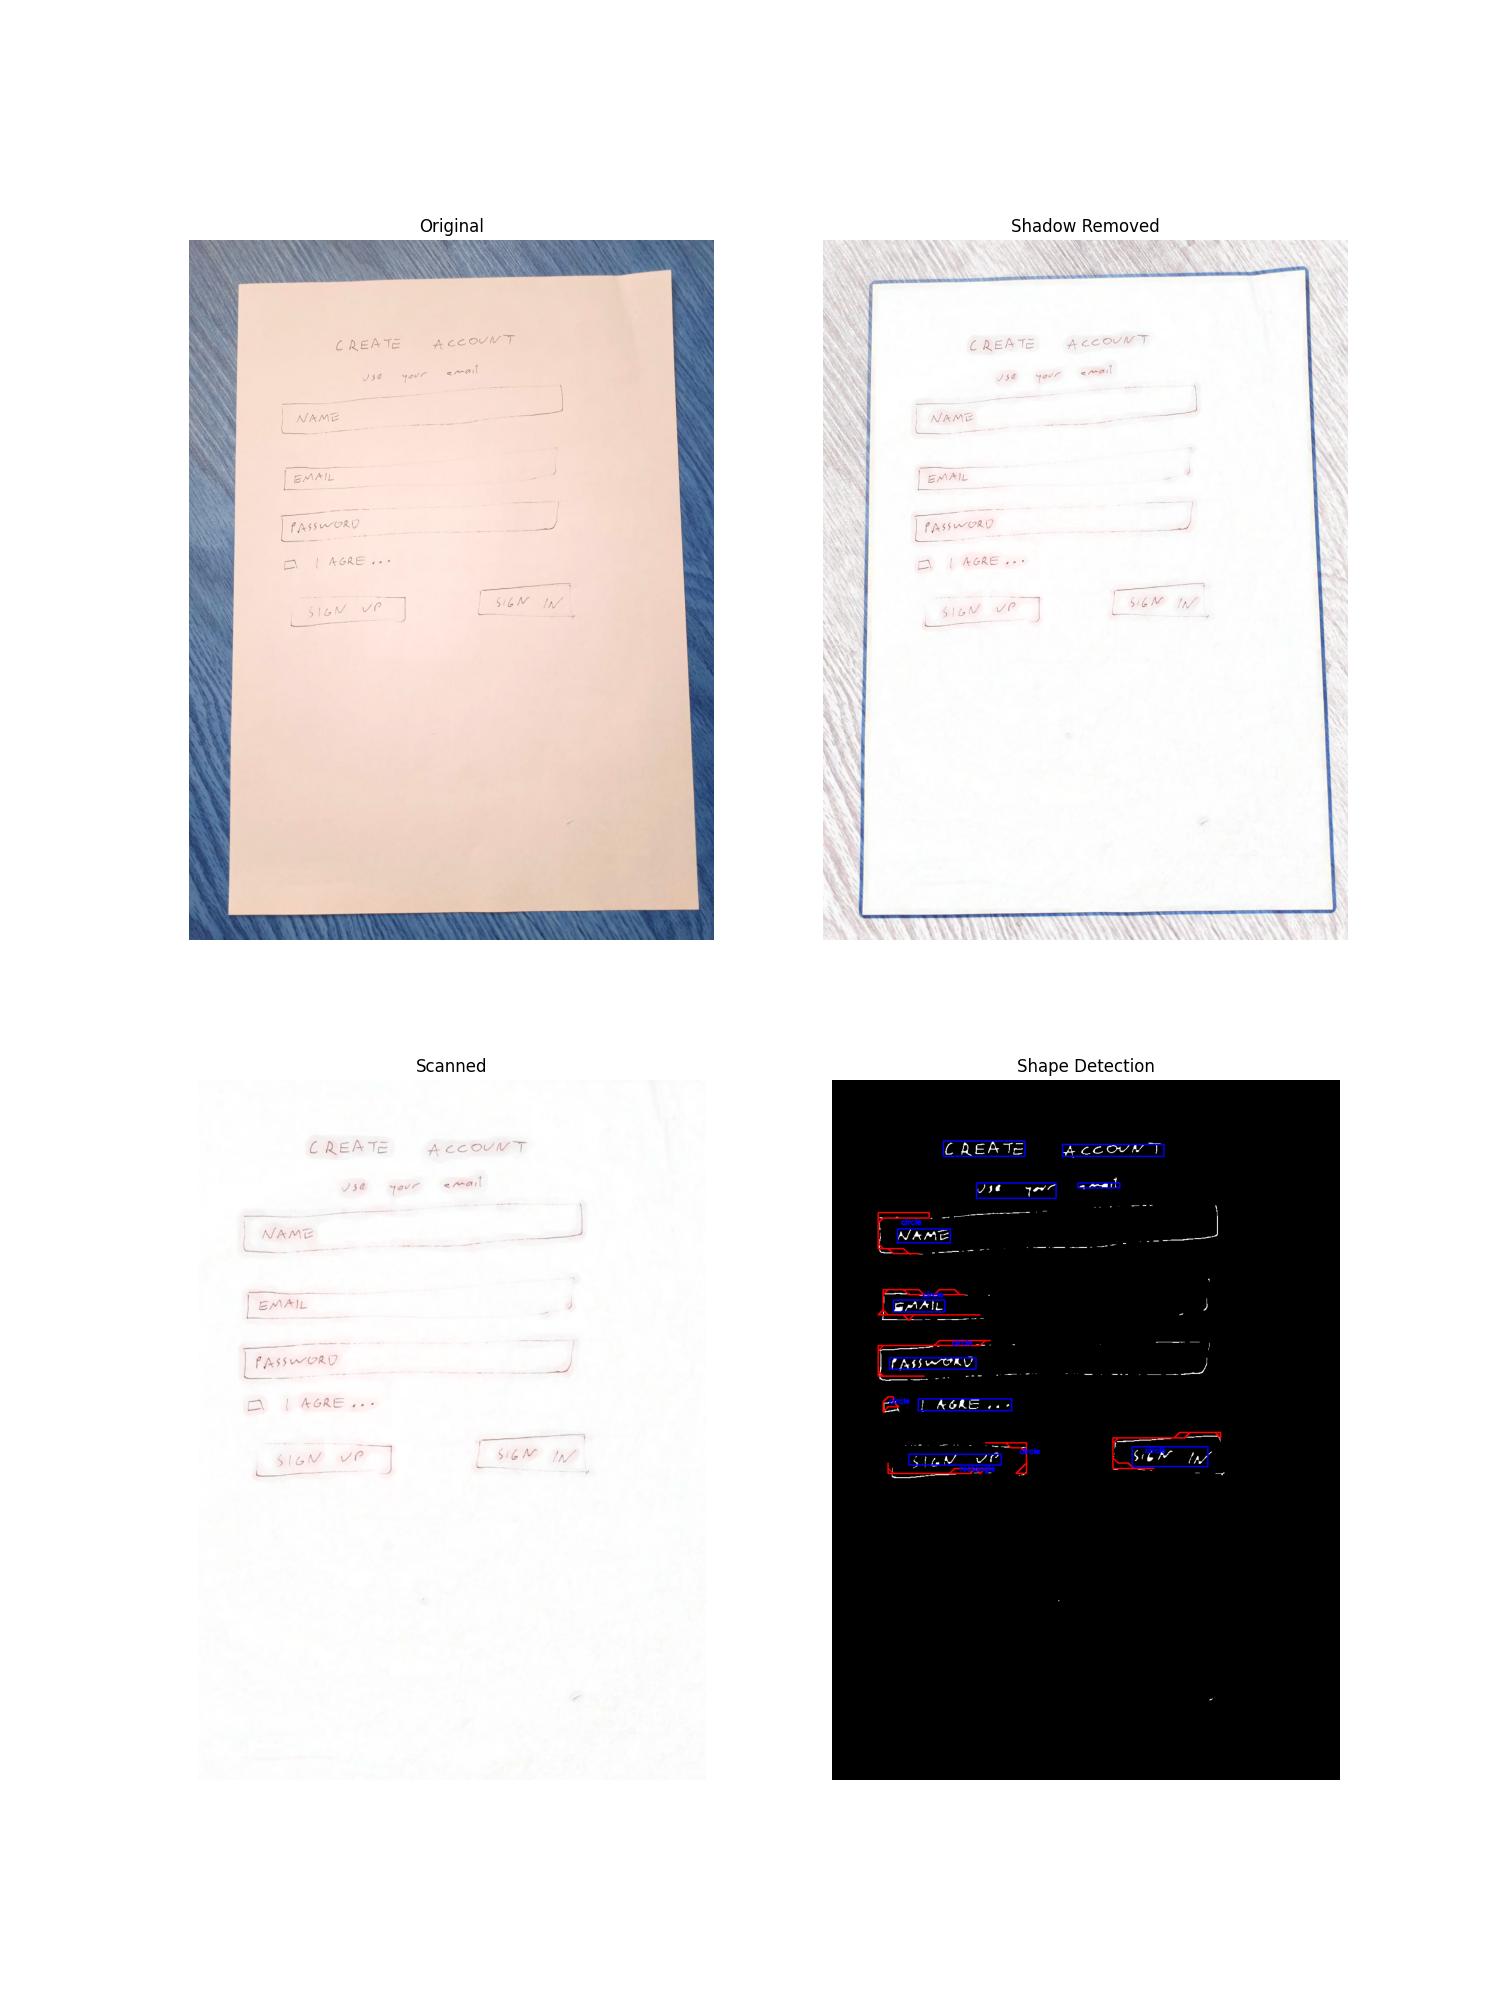 Original
CREATE ACCOUNT
use your email
NAME
EMAIL
PASSWORD
I AGRE...
SIGN UP
SIGN IN
Shadow Removed
CREATE ACCOUNT
use your email
NAME
EMAIL
PASSWORD
I AGRE...
SIGN UP
SIGN IN
Scanned
CREATE ACCOUNT
use your email
NAME
EMAIL
PASSWORD
I AGRE...
SIGN UP
SIGN IN
Shape Detection
CREATE ACCOUNT
use your email
NAME
EMAIL
PASSWORD
I AGRE...
SIGN UP
SIGN IN